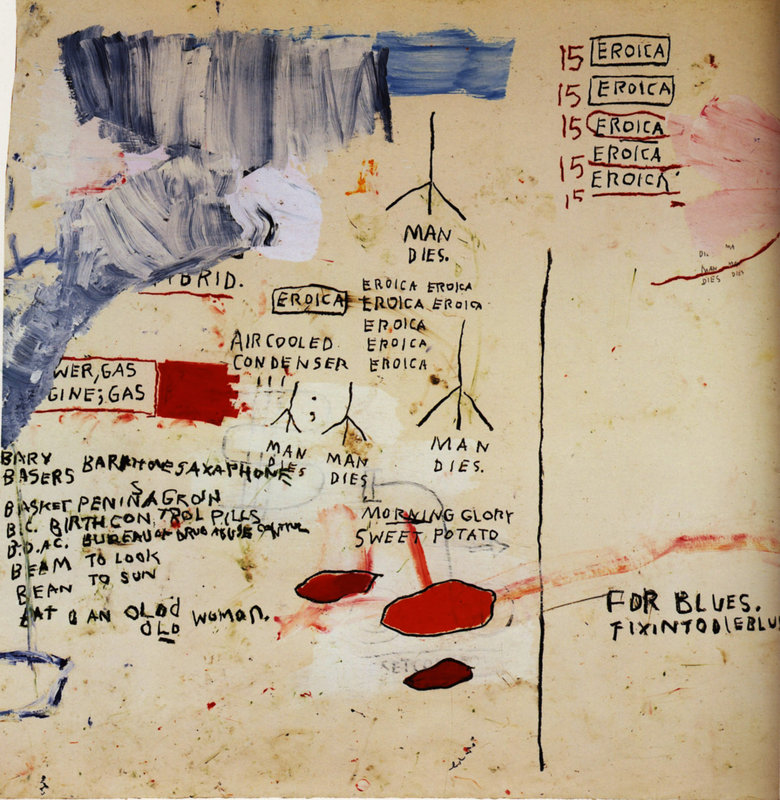 15 EROICA
15 EROICA
15 EROICA
15 EROICA
15 EROICA
MAN
DIES.
DI. MA
MAN MA
DIES DIES
HYBRID.
EROICA
EROICA EROICA
EROICA EROICA
EROICA
EROICA
EROICA
AIRCOOLED
CONDENSER
WER, GAS
GINE; GAS
;
MAN
DIES
MAN
DIES
MAN
DIES.
BARY
BASERS BARITONE SAXAPHONE
BASKET PENINAGRON
B.C. BIRTH CONTROL PILLS
B.D.AC. BUREAU OF DRUG ABUSE CONTROL
BEAM TO LOOK
BEAN TO SUN
BAT AN OLOD WOMAN.
OLD
MORNING GLORY
SWEET POTATO
FOR BLUES.
FIXINTODIEBLU